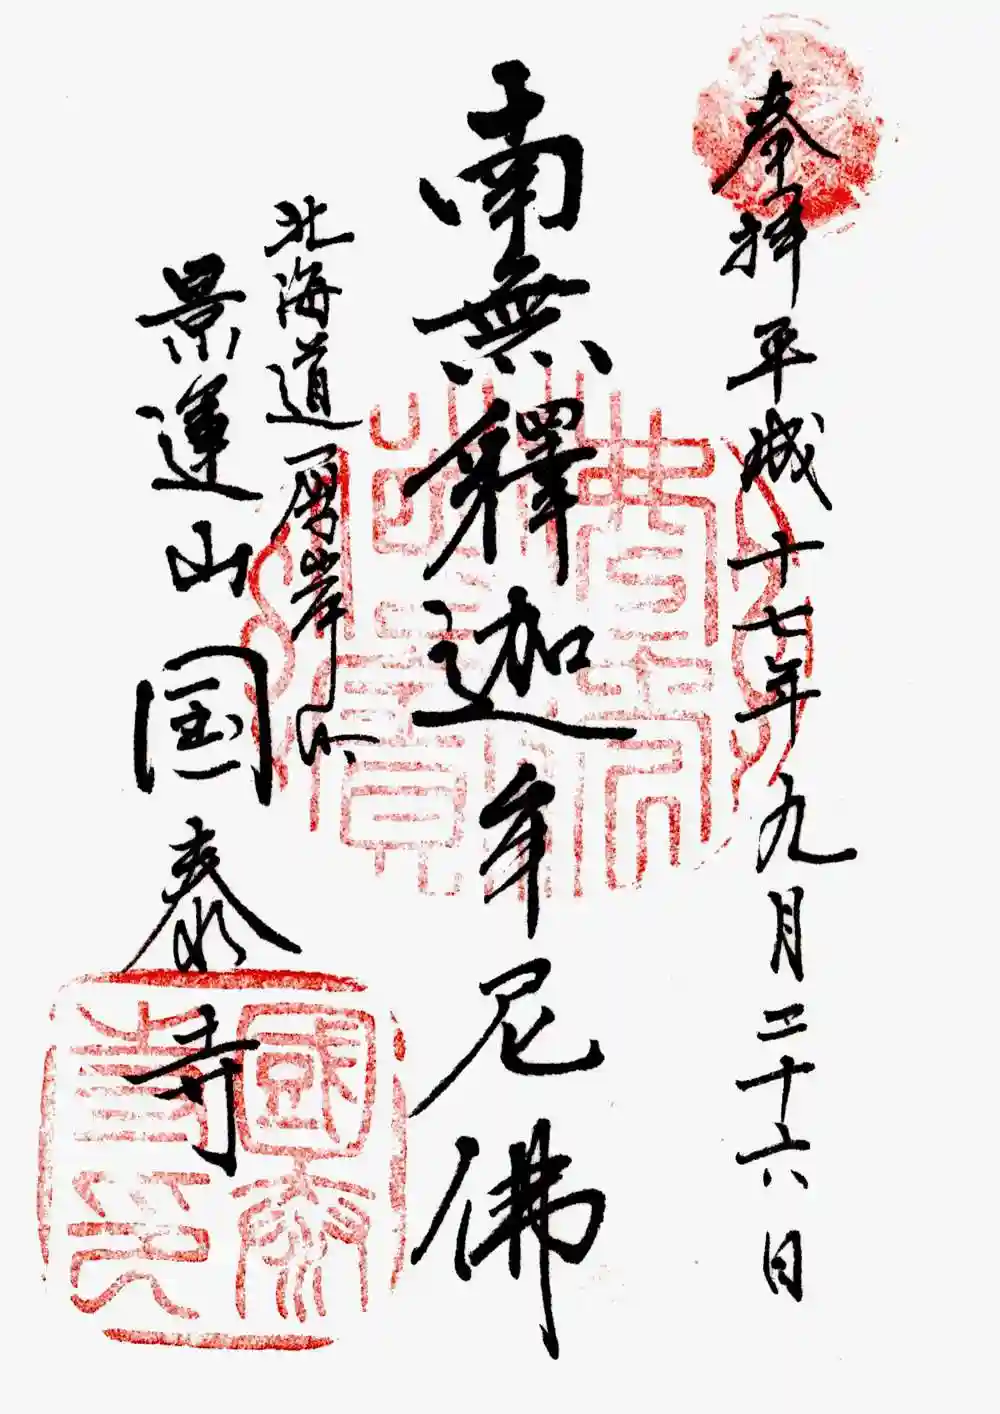 奉拝 平成十七年九月二十六日
南無釋迦牟尼佛
北海道厚岸
景運山国泰寺
國泰寺印